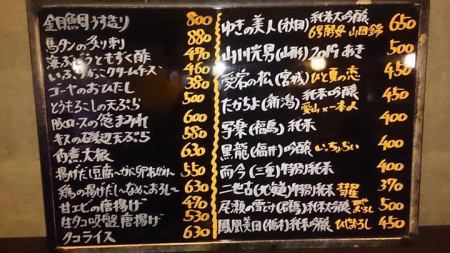 金目鯛うす造り 800
馬タンの炙り刺 880
海ぶどうともずく酢 470
いぶりがっこクリームチーズ 460
ゴーヤのおひたし 380
とうもろこしの天ぷら 500
豚ロースの 600
キスの磯辺天ぷら 580
角煮大根 630
揚げだし豆腐 550
鶏の揚げだし 630
甘エビの唐揚げ 470
生タコ吸盤唐揚げ 530
タコライス 630
ゆきの美人(秋田)純米大吟醸 650
6号酵母 山田錦
山川光男(山形)2019 あき 500
愛宕の松(宮城)ひと夏の恋 450
たかちよ(新潟) 450
愛山×一本〆
写楽(福島)純米
黒龍(福井)吟醸 いっちょらい 400
而今(三重)特別純米 400
二世古(北海道)特別純米 彗星 370
尾瀬の雪どけ(群馬)純米大吟醸 500
鳳凰美田(栃木)純米吟醸 ひやおろし 450